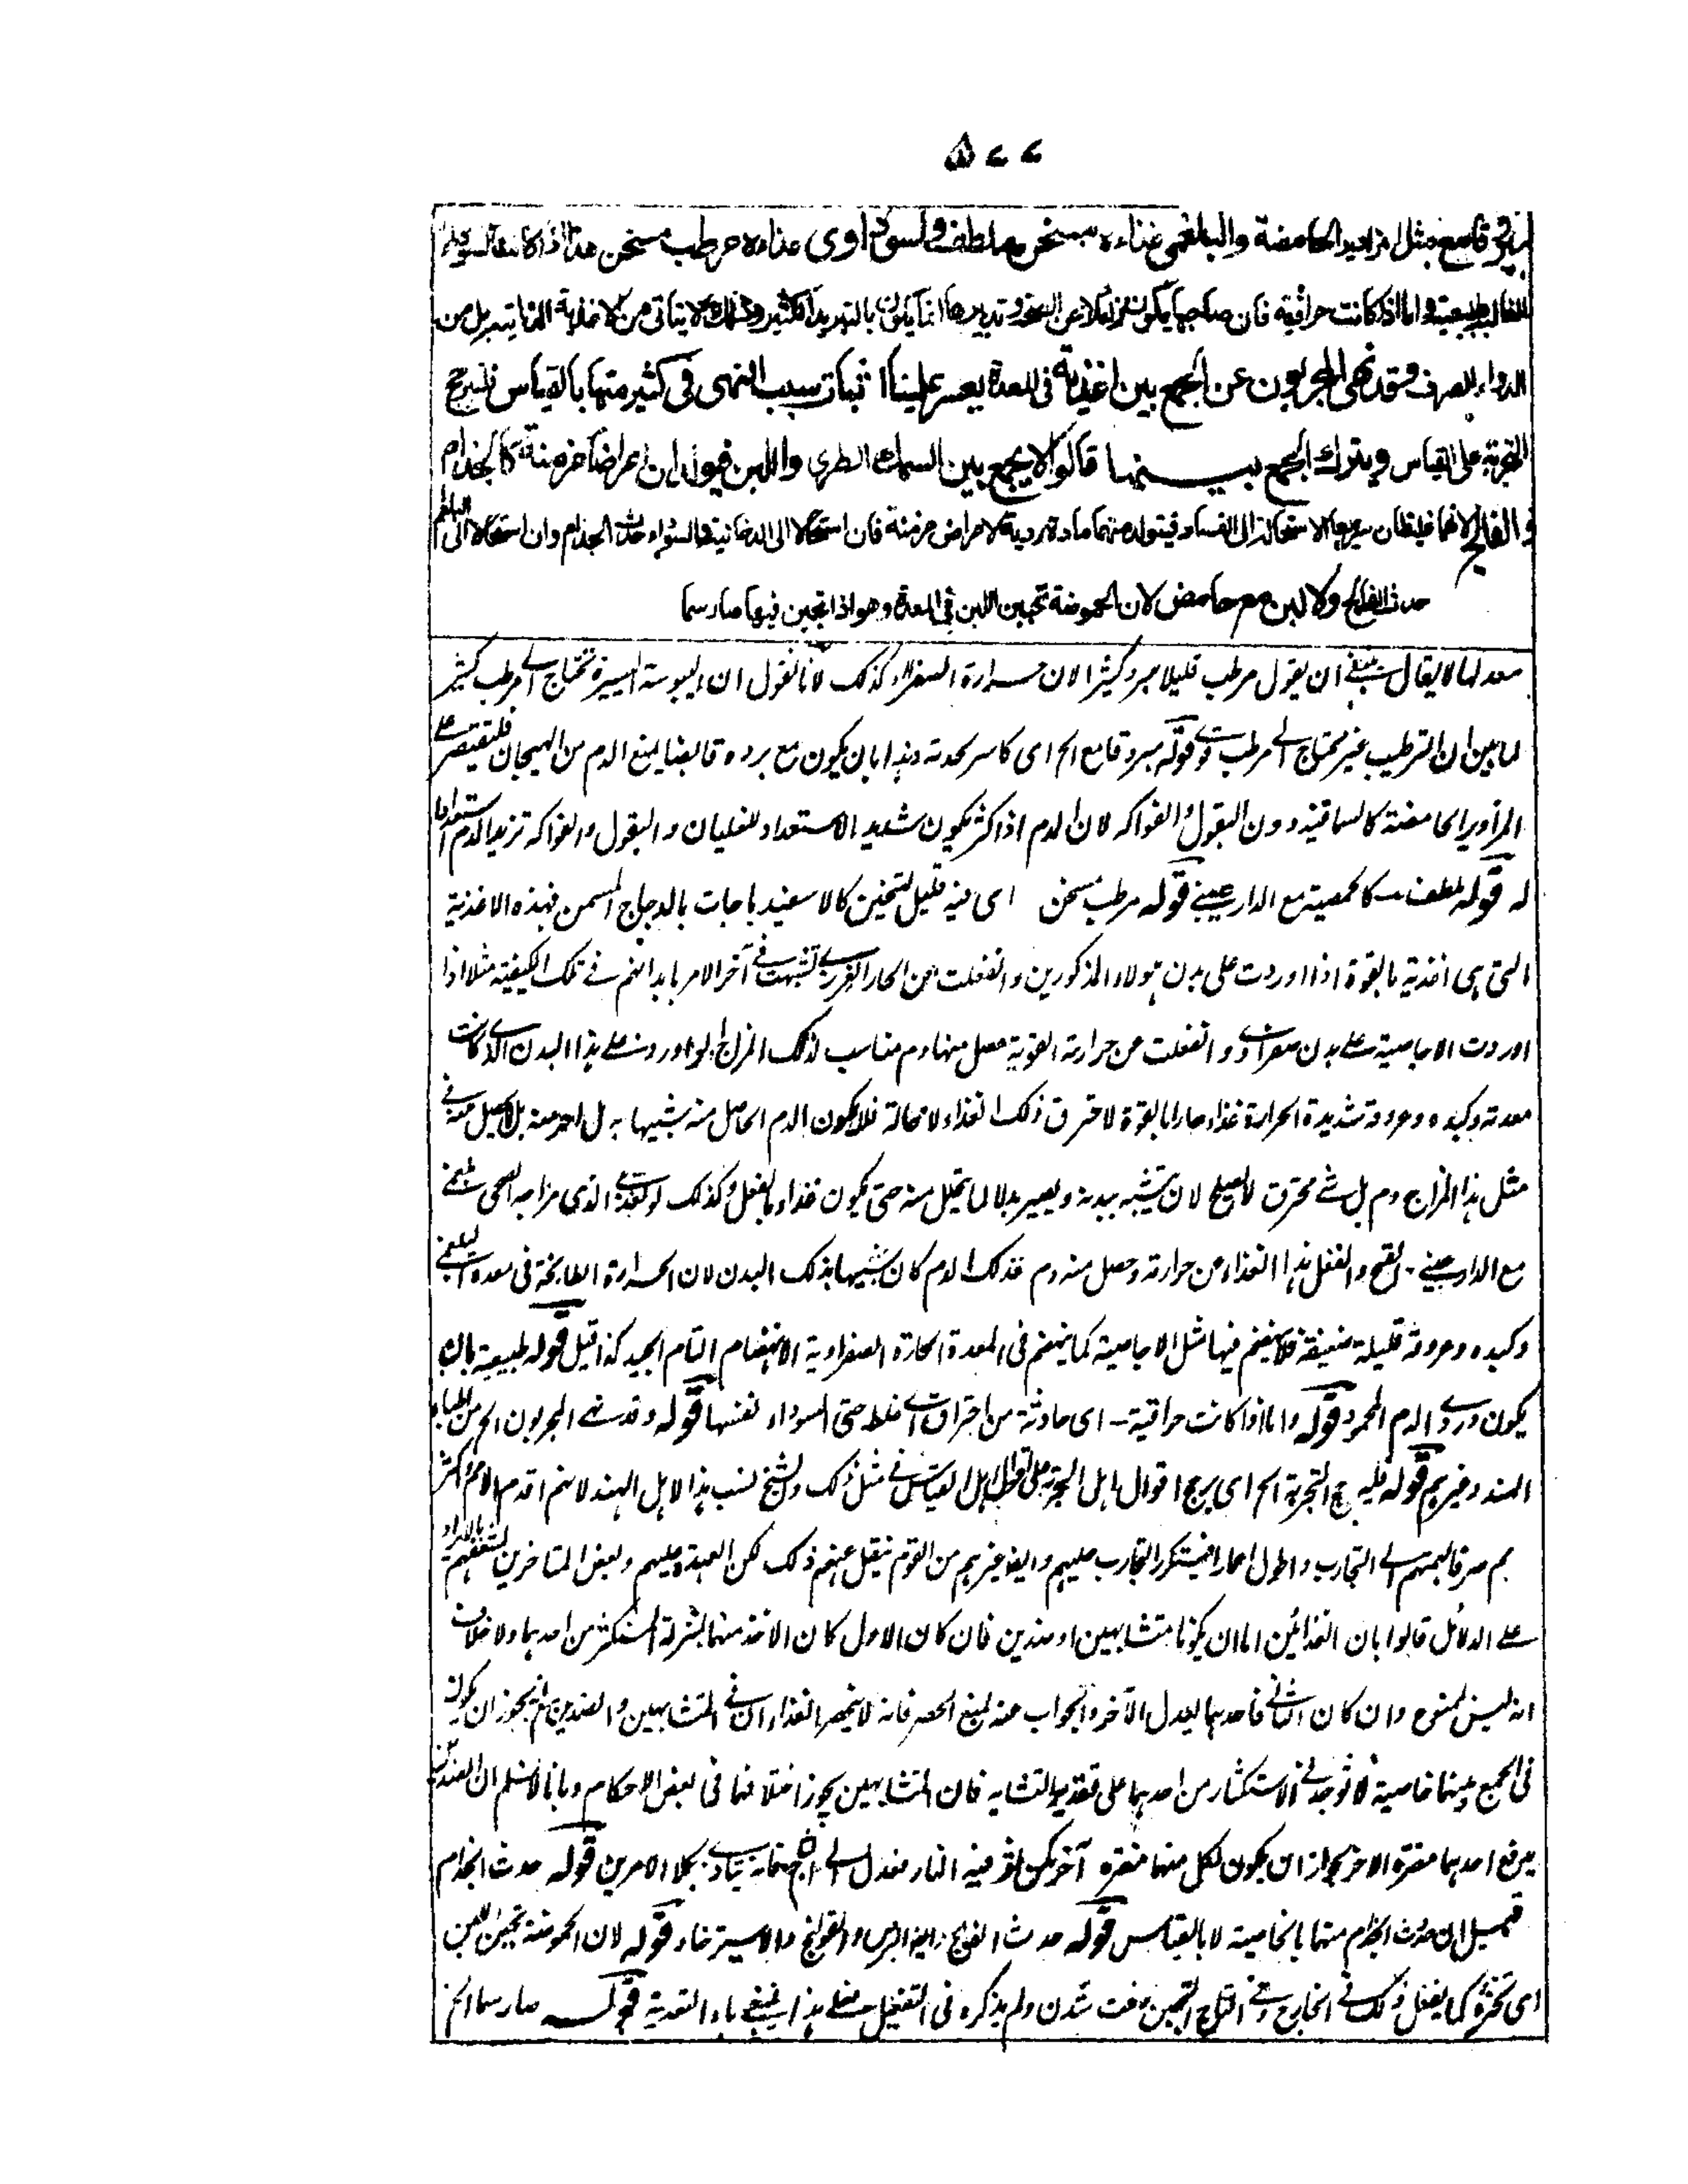 ۵۷۷
مبرد قامع مثل المزاوير الحامضة والبلغمي غذاءه مسخن ملطف والسوداوى غذاءه مرطب مسخن هذا اذا كانت السوداء
الغالبة طبيعية واما اذا كانت حراقية فان صاحبها يكون نزاعا عن السخن وتدبيرها انما يكون بالتبريد الكثير وذلك لا يتأتى من الاغذية الذاتية بل من
الدواء الصرف وقد نهى المجربون عن الجمع بين اغذية فى المعدة يعسر علينا اثبات سبب النهى فى كثير منها بالقياس فليرجح
التجربة على القياس ويترك الجمع بينها قالوا لا يجمع بين السمك الطرى واللبن فيولدان امراضا مزمنة كالجذام
والفالج لانهما غليظان سريعا الاستحالة الى الفساد فيتولد منهما مادة ردية لامراض مزمنة فان استحالا الى الدخانية والسوداء حدث الجذام وان استحالا الى البلغم
حدث الفالج ولا لبن مع حامض لان الحموضة تجبن اللبن فى المعدة وهو اذا تجبن فيها صار سما
معدلها لا يقال ينبغى ان يقول مرطب قليلا مبرد كثيرا لان حرارة الصفراء كذلك لانا نقول ان اليبوسة اليسيرة تحتاج الى مرطب كثير
لما بين ان الترطيب غير محتاج الى مرطب قوى قوله مبرد قامع الخ اى كاسر لحدته وذا بان يكون مع برده قابضا ليمنع الدم من الهيجان فليقتصر على
المزاوير الحامضة كالسماقية دون البقول والفواكه لان الدم اذا كثر يكون شديد الاستعداد للغليان والبقول والفواكه تزيد الدم استعدادا
له قوله ملطف كالحمصية مع الدارصينى قوله مرطب مسخن اى فيه قليل تسخين كالاسفيدباجات بالدجاج المسمن فهذه الاغذية
التى هى اغذية بالقوة اذا اوردت على بدن هؤلاء المذكورين وانفعلت عن الحار الغريزى تشبهت فى آخر الامر بابدانهم فى تلك الكيفية مثلا اذا
اوردت الاجاصية على بدن صفراوى وانفعلت من حرارته القوية حصل منها دم مناسب لذلك المزاج ولو اورد على هذا البدن الذى كانت
معدته وكبده وعروقه شديدة الحرارة غذاء حارا بالقوة لاحترق ذلك الغذاء لا محالة فلا يكون الدم الحاصل منه شبيها به بل لا يحصل منه فى
مثل هذا المزاج دم بل شئ محترق لا يصلح لان يتشبه ببدنه ويصير بدلا لما يتحلل منه حتى يكون غذاء بالفعل وكذلك لو تغذى الذى مزاجه الصحى بلغمى
مع الدارصينى والفعل هذا الغذاء من حرارته وحصل منه دم فذلك الدم كان شبيها بذلك البدن لان الحرارة الطابخة فى معدة البلغمى
وكبده وعروقه قليلة ضعيفة فلا ينهضم فيها مثل الاجاصية كما ينهضم فى المعدة الحارة الصفراوية الانهضام التام الجيد كذا قيل قوله طبيعية بان
يكون دردى الدم المحمود قوله واما اذا كانت حراقية - اى حادثة من احتراق اى خلط حتى السوداء نفسها قوله وقد نهى المجربون الخ من اطباء
الهند وغيرهم قوله فليرجح التجربة الخ اى يرجح اقوال اهل التجربة على اقوال اهل القياس فى مثل ذلك والشيخ نسب هذا الى اهل الهند لانهم اقدم الامم واكثر
هم صرفا لهمتهم الى التجارب واطول اعمارا فيتكرر التجارب عليهم وايضا غيرهم من القوم ينقل عنهم ذلك لكن العهدة عليهم وبعض المتاخرين لشغفهم بايراد
على الدلائل قالوا بان الغذائين اما ان يكونا متشابهين او ضدين فان كان الاول كان الاخذ منهما بمنزلة المستكثر من احدهما ولا خلاف
انه ليس بممنوع وان كان الثانى فاحدهما يعدل الآخر والجواب عنه بمنع الحصر فانه لا ينحصر الغذاءان فى المتشابهين والضدين ثم يجوز ان يكون
فى الجمع بينهما خاصية لا توجد فى الاستكثار من احدهما على تقدير التشابه فان المتشابهين يجوز اختلافهما فى بعض الاحكام وبانا لا نسلم ان الضدين
يدفع احدهما مضرة الاخر لجواز ان يكون لكل منهما مضرة آخر كمن وقع فيه النار فعدل الى فانه يتأذى بكلا الامرين قوله حدث الجذام
قيل ان حدوث الجذام منهما بالخاصية لا بالقياس قوله حدث الفالج وايضا البرص والقولنج والاسترخاء قوله لان الحموضة تجبن اللبن
اى تخثره كما يفعل ذلك فى الخارج وفى التاج التجبن سفت شدن ولم يذكره فى التفعيل فعلى هذا ينبغى باء التعدية قوله صار سما الخ